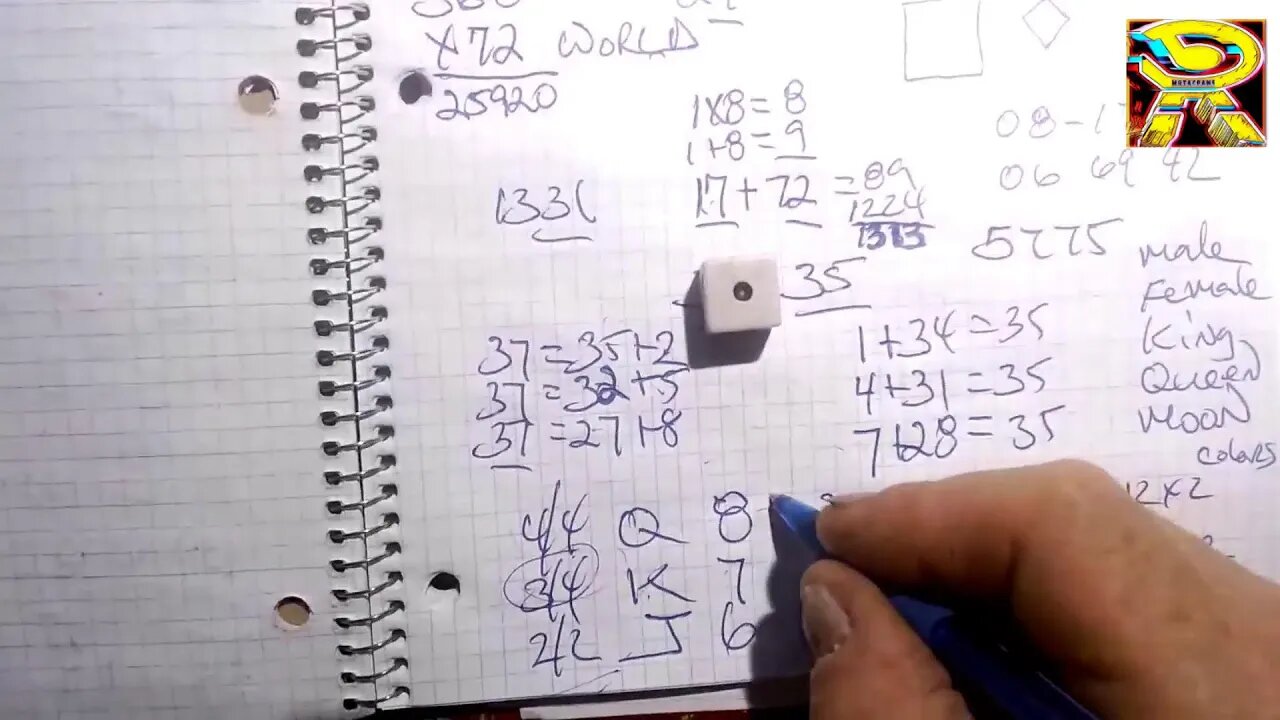 x72 WORLD
25920
1x8 = 8
1+8 = 9
17 + 72 = 89
1224
1313
1331
08-1
06 69 42
5775
35
male
Female
King
Queen
Moon
colors
37 = 35+2
37 = 32+5
37 = 27+8
1+34 = 35
4+31 = 35
7+28 = 35
12x2
4/4 Q 8
3/4 K 7
2/2 J 6